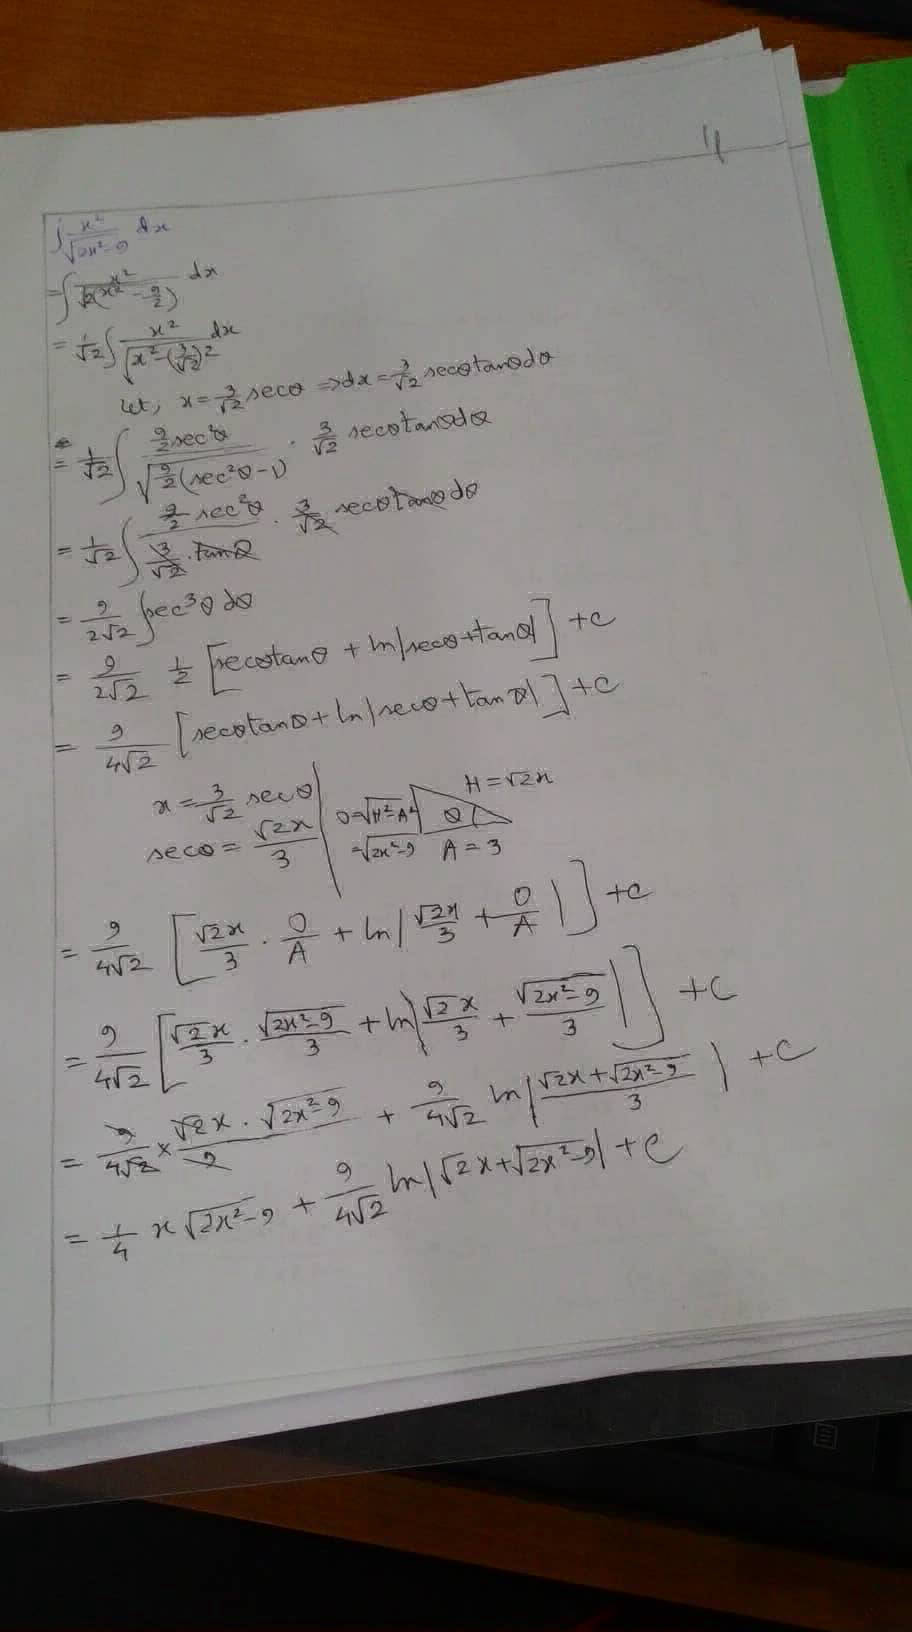 4
∫ x²/√(2x²-9) dx
= ∫ x²/√(2(x² - 9/2)) dx
= 1/√2 ∫ x²/√(x² - (3/√2)²) dx
Let, x = 3/√2 secθ ⇒ dx = 3/√2 secθtanθdθ
= 1/√2 ∫ (9/2 sec²θ)/√(9/2(sec²θ-1)) · 3/√2 secθtanθdθ
= 1/√2 ∫ (9/2 sec²θ)/(3/√2 · tanθ) · 3/√2 secθtanθdθ
= 9/(2√2) ∫sec³θ dθ
= 9/(2√2) 1/2 [secθtanθ + ln|secθ+tanθ|] + c
= 9/(4√2) [secθtanθ + ln|secθ+tanθ|] + c
x = 3/√2 secθ
secθ = √2x/3
O=√(H²-A²)
=√(2x²-9)
θ
H = √2x
A = 3
= 9/(4√2) [√2x/3 · O/A + ln|√2x/3 + O/A|] + c
= 9/(4√2) [√2x/3 · √(2x²-9)/3 + ln|√2x/3 + √(2x²-9)/3|] + c
= 9/(4√2) × (√2x · √(2x²-9))/9 + 9/(4√2) ln|(√2x+√(2x²-9))/3| + c
= 1/4 x √(2x²-9) + 9/(4√2) ln|√2x+√(2x²-9)| + c